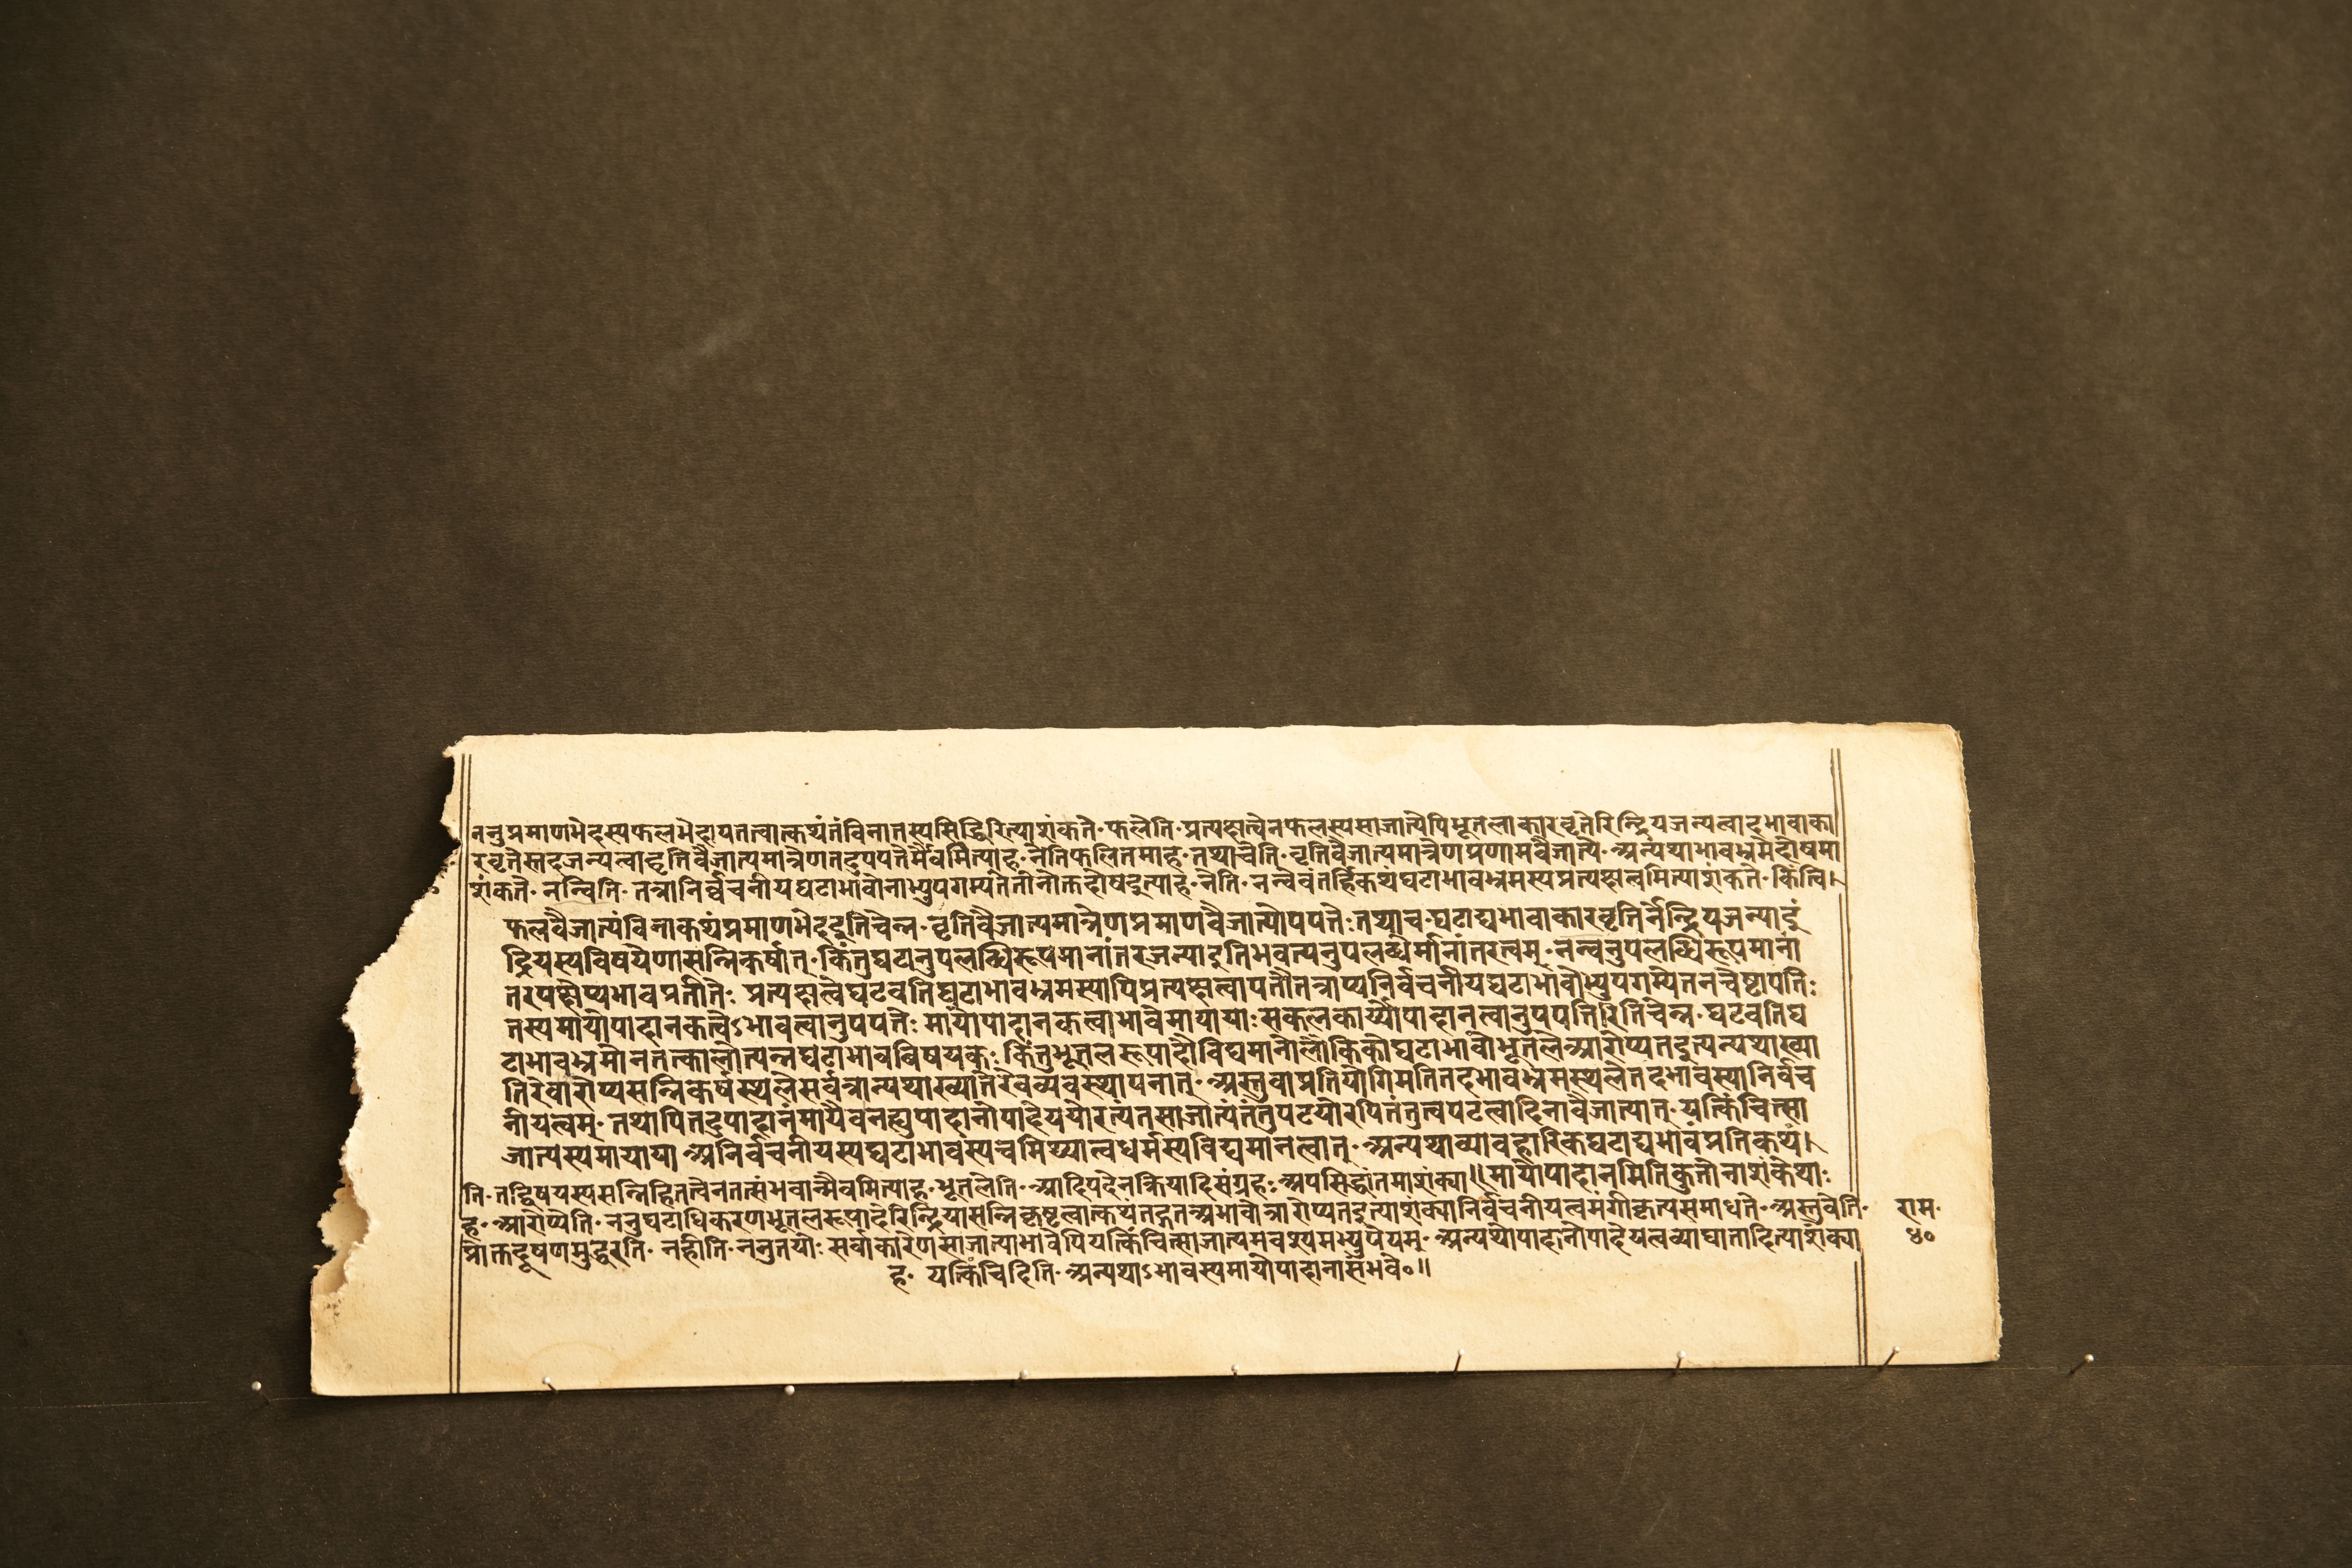 ननुप्रमाणभेदस्यफलभेदायतत्वात्कथंतंविनातस्यसिद्धिरित्याशंकते॰फलेति॰प्रत्यक्षत्वेनफलस्यसाजात्येपिभूतलाकारवृत्तेरिन्द्रियजन्यत्वादभावाका
रवृत्तेस्तदजन्यत्वाद्वृत्तिवैजात्यमात्रेणतदुपपत्तेर्मैवमित्याह॰नेतिफलितमाह॰तथाचेति॰वृत्तिवैजात्यमात्रेणप्रणामवैजात्ये॰अन्यथाभावभ्रमेदोषमा
शंकते॰नन्विति॰तत्रानिर्व्वचनीयघटाभावोनाभ्युपगम्यतेतोनोक्तदोषइत्याह॰नेति॰नन्वेवंतर्हिकथंघटाभावभ्रमस्यप्रत्यक्षत्वमित्याशंकते॰किंत्वि।
फलवैजात्यंविनाकथंप्रमाणभेदइतिचेन्न॰वृत्तिवैजात्यमात्रेणप्रमाणवैजात्योपपत्तेःतथाच॰घटाद्यभावाकारवृत्तिर्नेन्द्रियजन्याइं
द्रियस्यविषयेणासन्निकर्षात्॰किंतुघटानुपलब्धिरूपमानांतरजन्याइतिभवत्यनुपलब्धेर्मानांतरत्वम्॰नन्वनुपलब्धिरूपमानां
तरपक्षेप्यभावप्रतीतेः प्रत्यक्षत्वेघटवतिघटाभावभ्रमस्यापिप्रत्यक्षत्वापत्तौतत्राप्यनिर्वचनीयघटाभावोभ्युपगम्येतनचेष्टापत्तिः
तस्यमायोपादानकत्वेऽभावत्वानुपपत्तेः मायोपादानकत्वाभावेमायायाःसकलकार्य्योपादानत्वानुपपत्तिरितिचेन्न॰घटवतिघ
टाभावभ्रमोनतत्कालोत्पन्नघटाभावविषयकः किंतुभूतलरूपादौविद्यमानोलौकिकोघटाभावोभूतलेआरोप्यतइत्यन्यथाख्या
तिरेवारोप्यसन्निकर्षस्थलेसर्वत्रान्यथाख्यातेरेवव्यवस्थापनात्॰अस्तुवाप्रतियोगिमतितदभावभ्रमस्थलेतदभावस्यानिर्वच
नीयत्वम्॰तथापितदुपादानंमायैवनह्युपादानोपादेययोरत्यंतसाजात्यंतंतुपटयोरपितंतुत्वपटत्वादिनावैजात्यात्॰यत्किंचित्सा
जात्यस्यमायाया अनिर्वचनीयस्यघटाभावस्यचमिथ्यात्वधर्मस्यविद्यमानत्वात्॰अन्यथाव्यावहारिकघटाद्यभावंप्रतिकथं।
ति॰तद्विषयस्यसन्निहितत्वेनतत्संभवान्मैवमित्याह॰भूतलेति॰आदिपदेनक्रियादिसंग्रहः॰अपसिद्धांतमाशंक्या॥मायोपादानमितिकुतोनाशंकेथाः
ह॰आरोप्येति॰ननुघटाधिकरणभूतलरूपादेरिन्द्रियासन्निकृष्टत्वात्कथंतद्गतअभावोत्रारोप्यतइत्याशंक्यानिर्वचनीयत्वमंगीकृत्यसमाधत्ते॰अस्तुवेति॰
प्रोक्तदूषणमुद्धरति॰नहीति॰ननुतयोः सर्वाकारेणसाजात्याभावेपियत्किंचित्साजात्यमवश्यमभ्युपेयम्॰अन्यथोपादानोपादेयत्वव्याघातादित्याशंक्या
ह॰ यत्किंचिदिति॰अन्यथाऽभावस्यमायोपादानासंभवे०॥
राम॰
४०